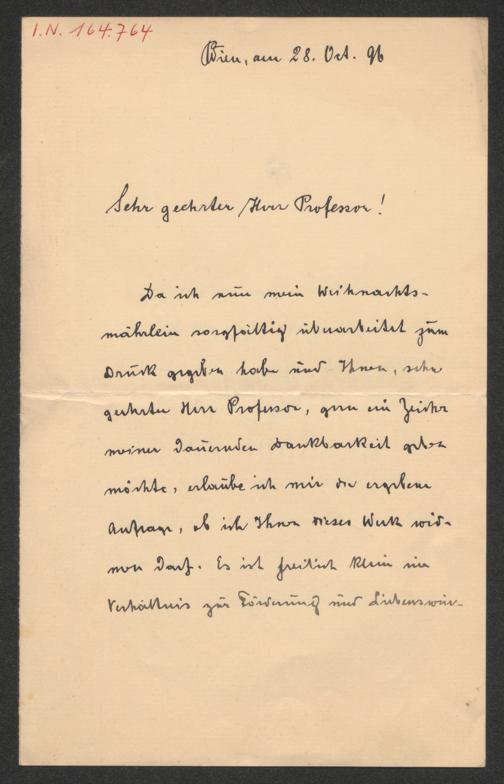 I.N. 164.764
Wien, am 28. Oct. 96
Sehr geehrter Herr Professor!
Da ich nun mein Weihnachts-
mährlein sorgfältig überarbeitet zum
Druck gegeben habe und Ihnen, sehr
geehrter Herr Professor, gern ein Zeichen
meiner dauernden Dankbarkeit geben
möchte, erlaube ich mir die ergebene
Anfrage, ob ich Ihnen dieses Werk wid-
men darf. Es ist freilich klein im
Verhältnis zur Förderung und Liebenswür-